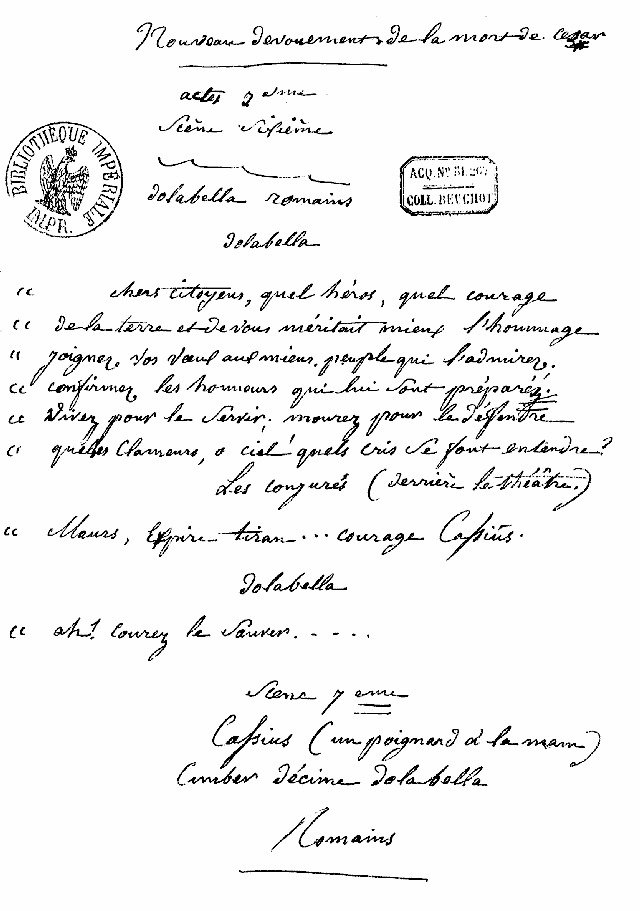 Nouveau devouement de la mort de Cesar
actes 3 eme
Scène Sixième
BIBLIOTHÈQUE IMPÉRIALE
IMPR.
ACQ. Nº
COLL. BEUCHOT
dolabella romains
dolabella
" chers citoyens, quel héros, quel courage
" de la terre et de vous méritait mieux l'hommage
" joignez vos vœux aux miens, peuple qui l'admirez.
" confirmez les honneurs qui lui sont préparéz.
" Vivez pour le servir, mourez pour le défendre
" quelles clameurs, o ciel! quels cris se font entendre?
Les conjurés (derrière le théâtre.)
" Meurs, Expire tiran ... courage Cassius.
dolabella
" ah! Courez le sauver. . . . .
Scene 7 eme
Cassius (un poignard à la main)
Cimber décime dolabella
Romains